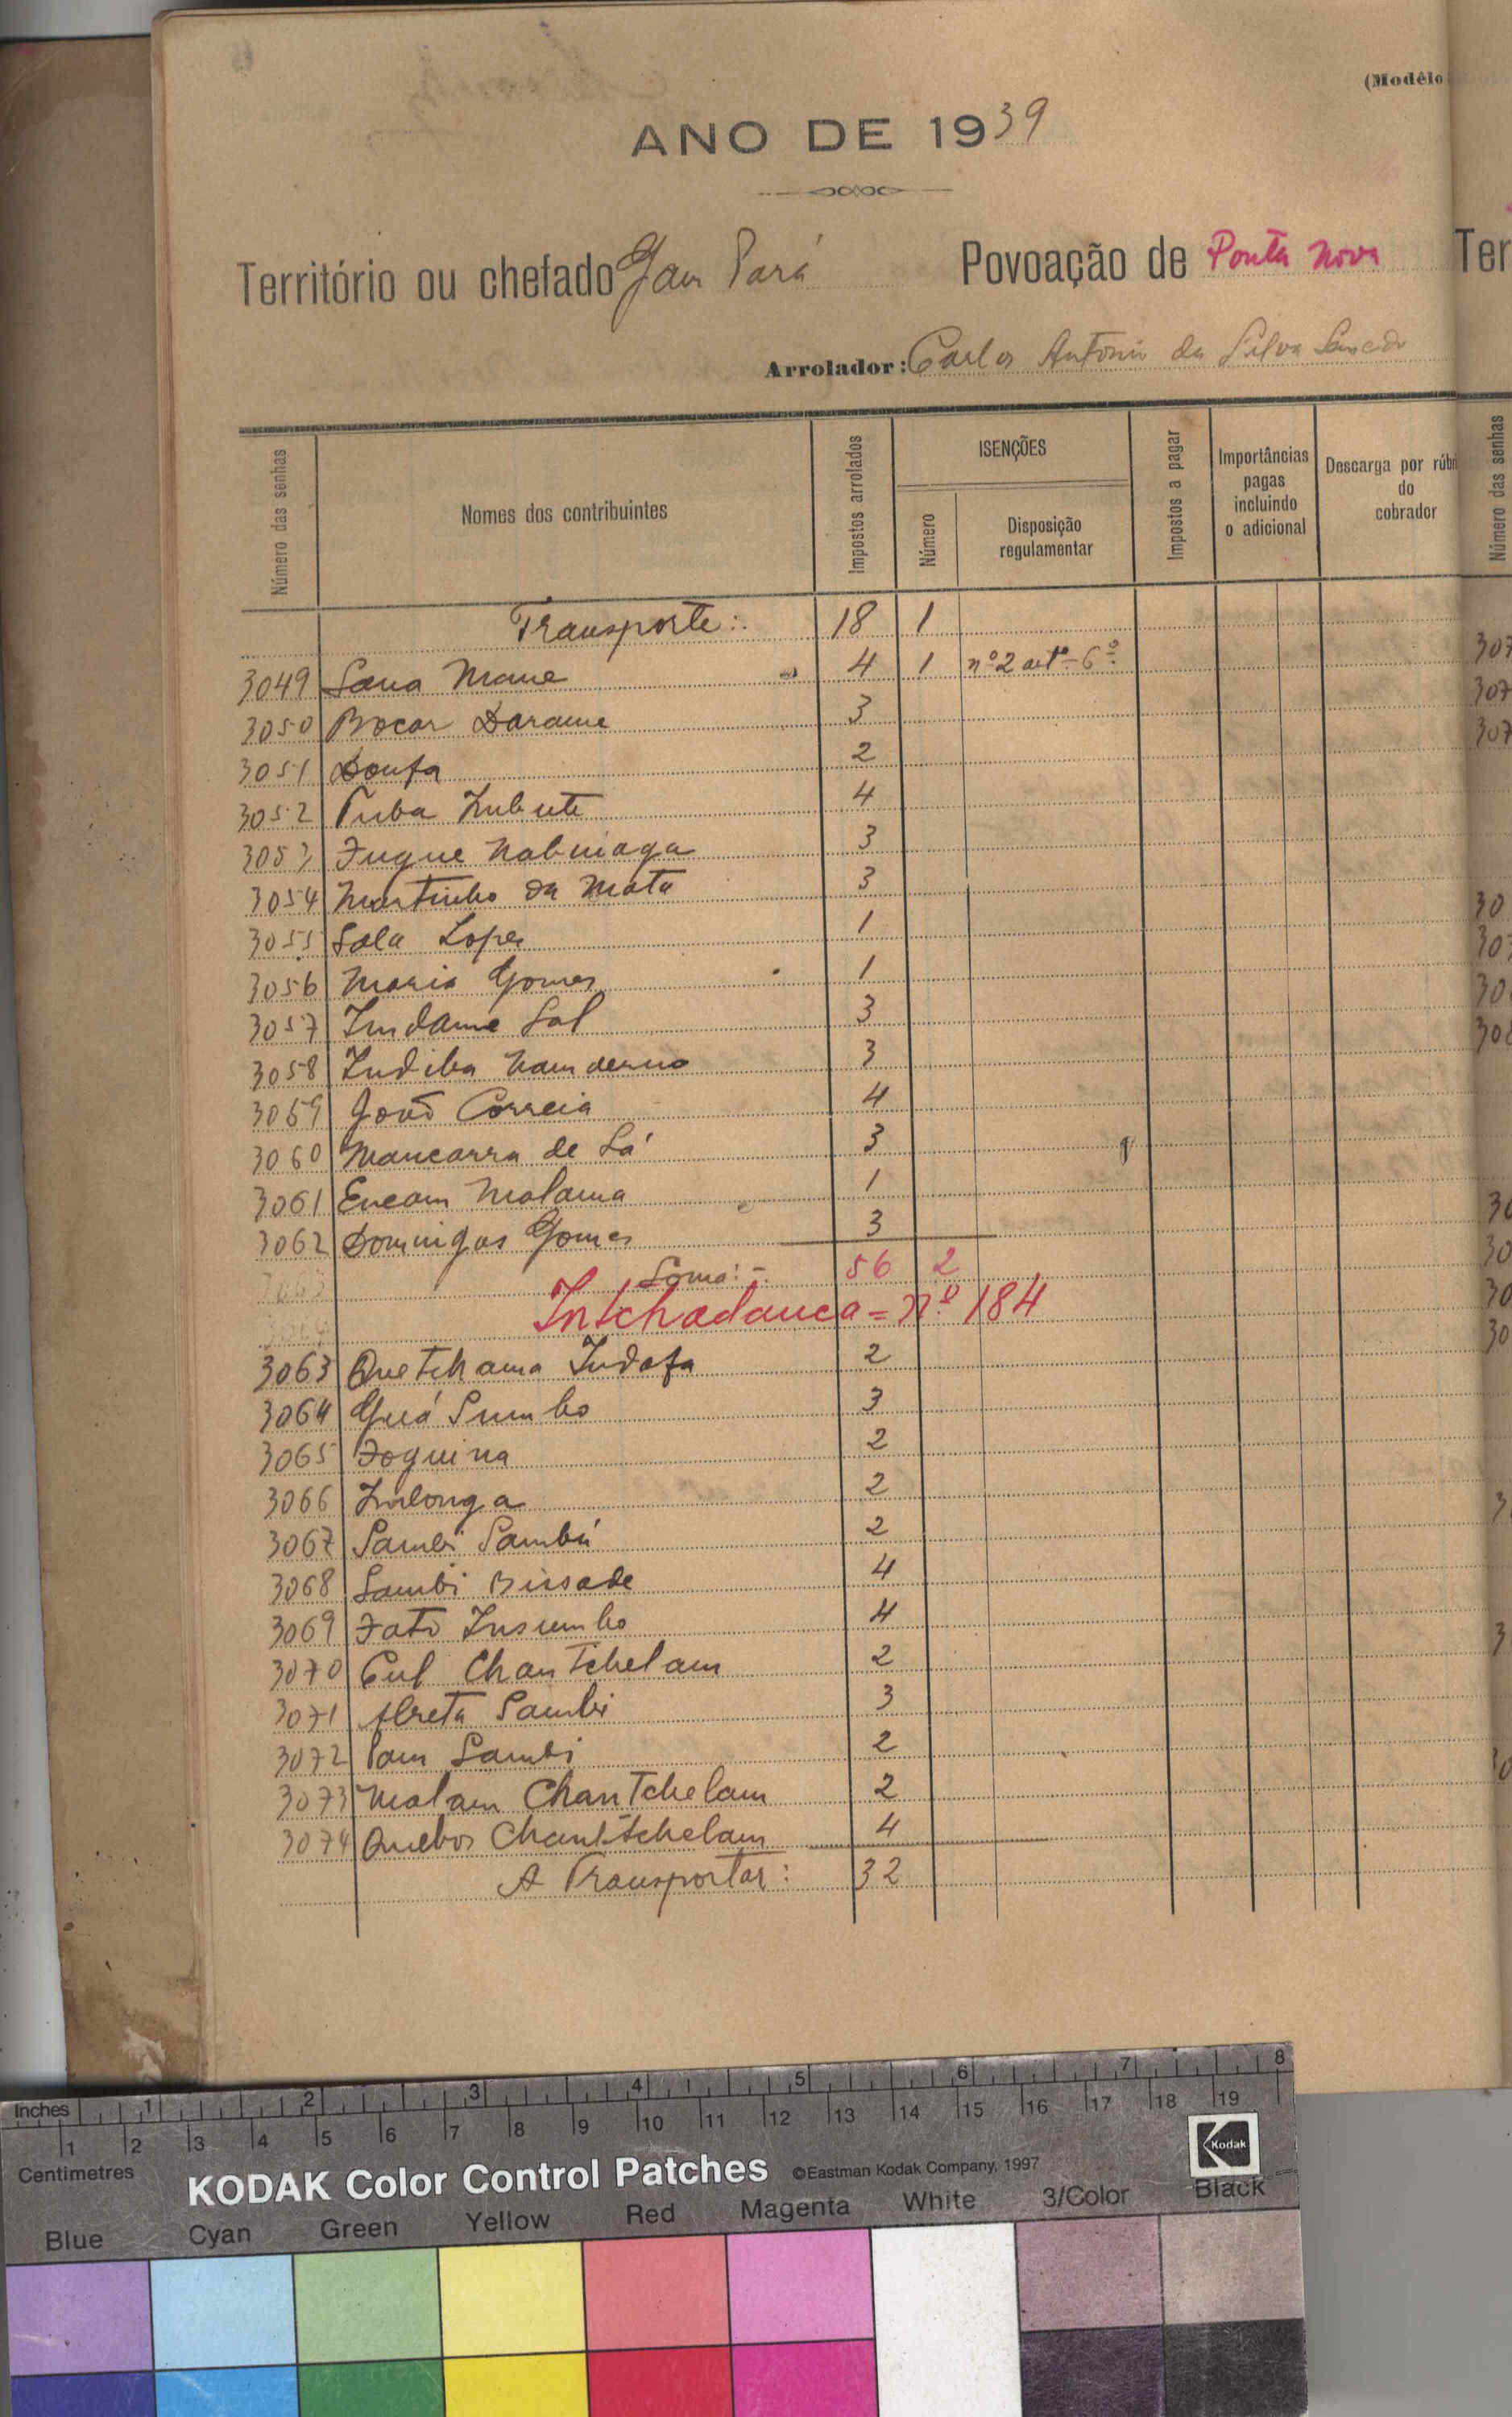 (Modêlo
ANO DE 1939
Território ou chefado Gam Pará
Povoação de Ponta Nova
Ter
Arrolador: Carlos Antonio da Silva
Número das senhas
Nomes dos contribuintes
Impostos arrolados
ISENÇÕES
Número
Disposição regulamentar
Impostos a pagar
Importâncias pagas incluindo o adicional
Descarga por rúbri do cobrador
Número das senhas
Transporte: 18 1
3049 Sana Mane 4 1 nº 2 artº 6º
3050 Bocar Darame 3
3051 Doufa 2
3052 Tuba 4
3053 Fuque Nabuiaga 3
3054 Martinho da Mata 3
3055 Sala Lopes 1
3056 Maria Gomes 1
3057 Indame Sal 3
3058 Indiba 3
3059 João Correia 4
3060 Mancarra de Sá 3
3061 Encam Malama 1
3062 Domingos Gomes 3
Soma: 56 2
Intchadanca = nº 184
3063 Quetchama Indafa 2
3064 Guá Sumbo 3
3065 Foquina 2
3066 2
3067 Sambi Sambú 2
3068 Sambi Bissade 4
3069 Fato Insumbo 4
3070 Chantchelam 2
3071 Sambi 3
3072 Pam Sambi 2
3073 Malam Chantchelam 2
3074 Quebos Chantchelam 4
A Transportar: 32
Inches 1 2 3 4 5 6 7 8
1 2 3 4 5 6 7 8 9 10 11 12 13 14 15 16 17 18 19
Centimetres
KODAK Color Control Patches ©Eastman Kodak Company, 1997
Kodak
Blue Cyan Green Yellow Red Magenta White 3/Color Black